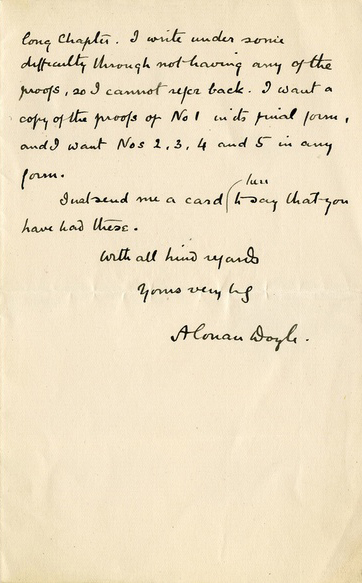 long Chapter. I write under some
difficulty through not having any of the
proofs, so I cannot refer back. I want a
copy of the proofs of No 1 in its final form,
and I want Nos 2, 3, 4 and 5 in any
form.
Just send me a card ( to say that you
have had these.
With all kind regards
Yours very
A Conan Doyle.